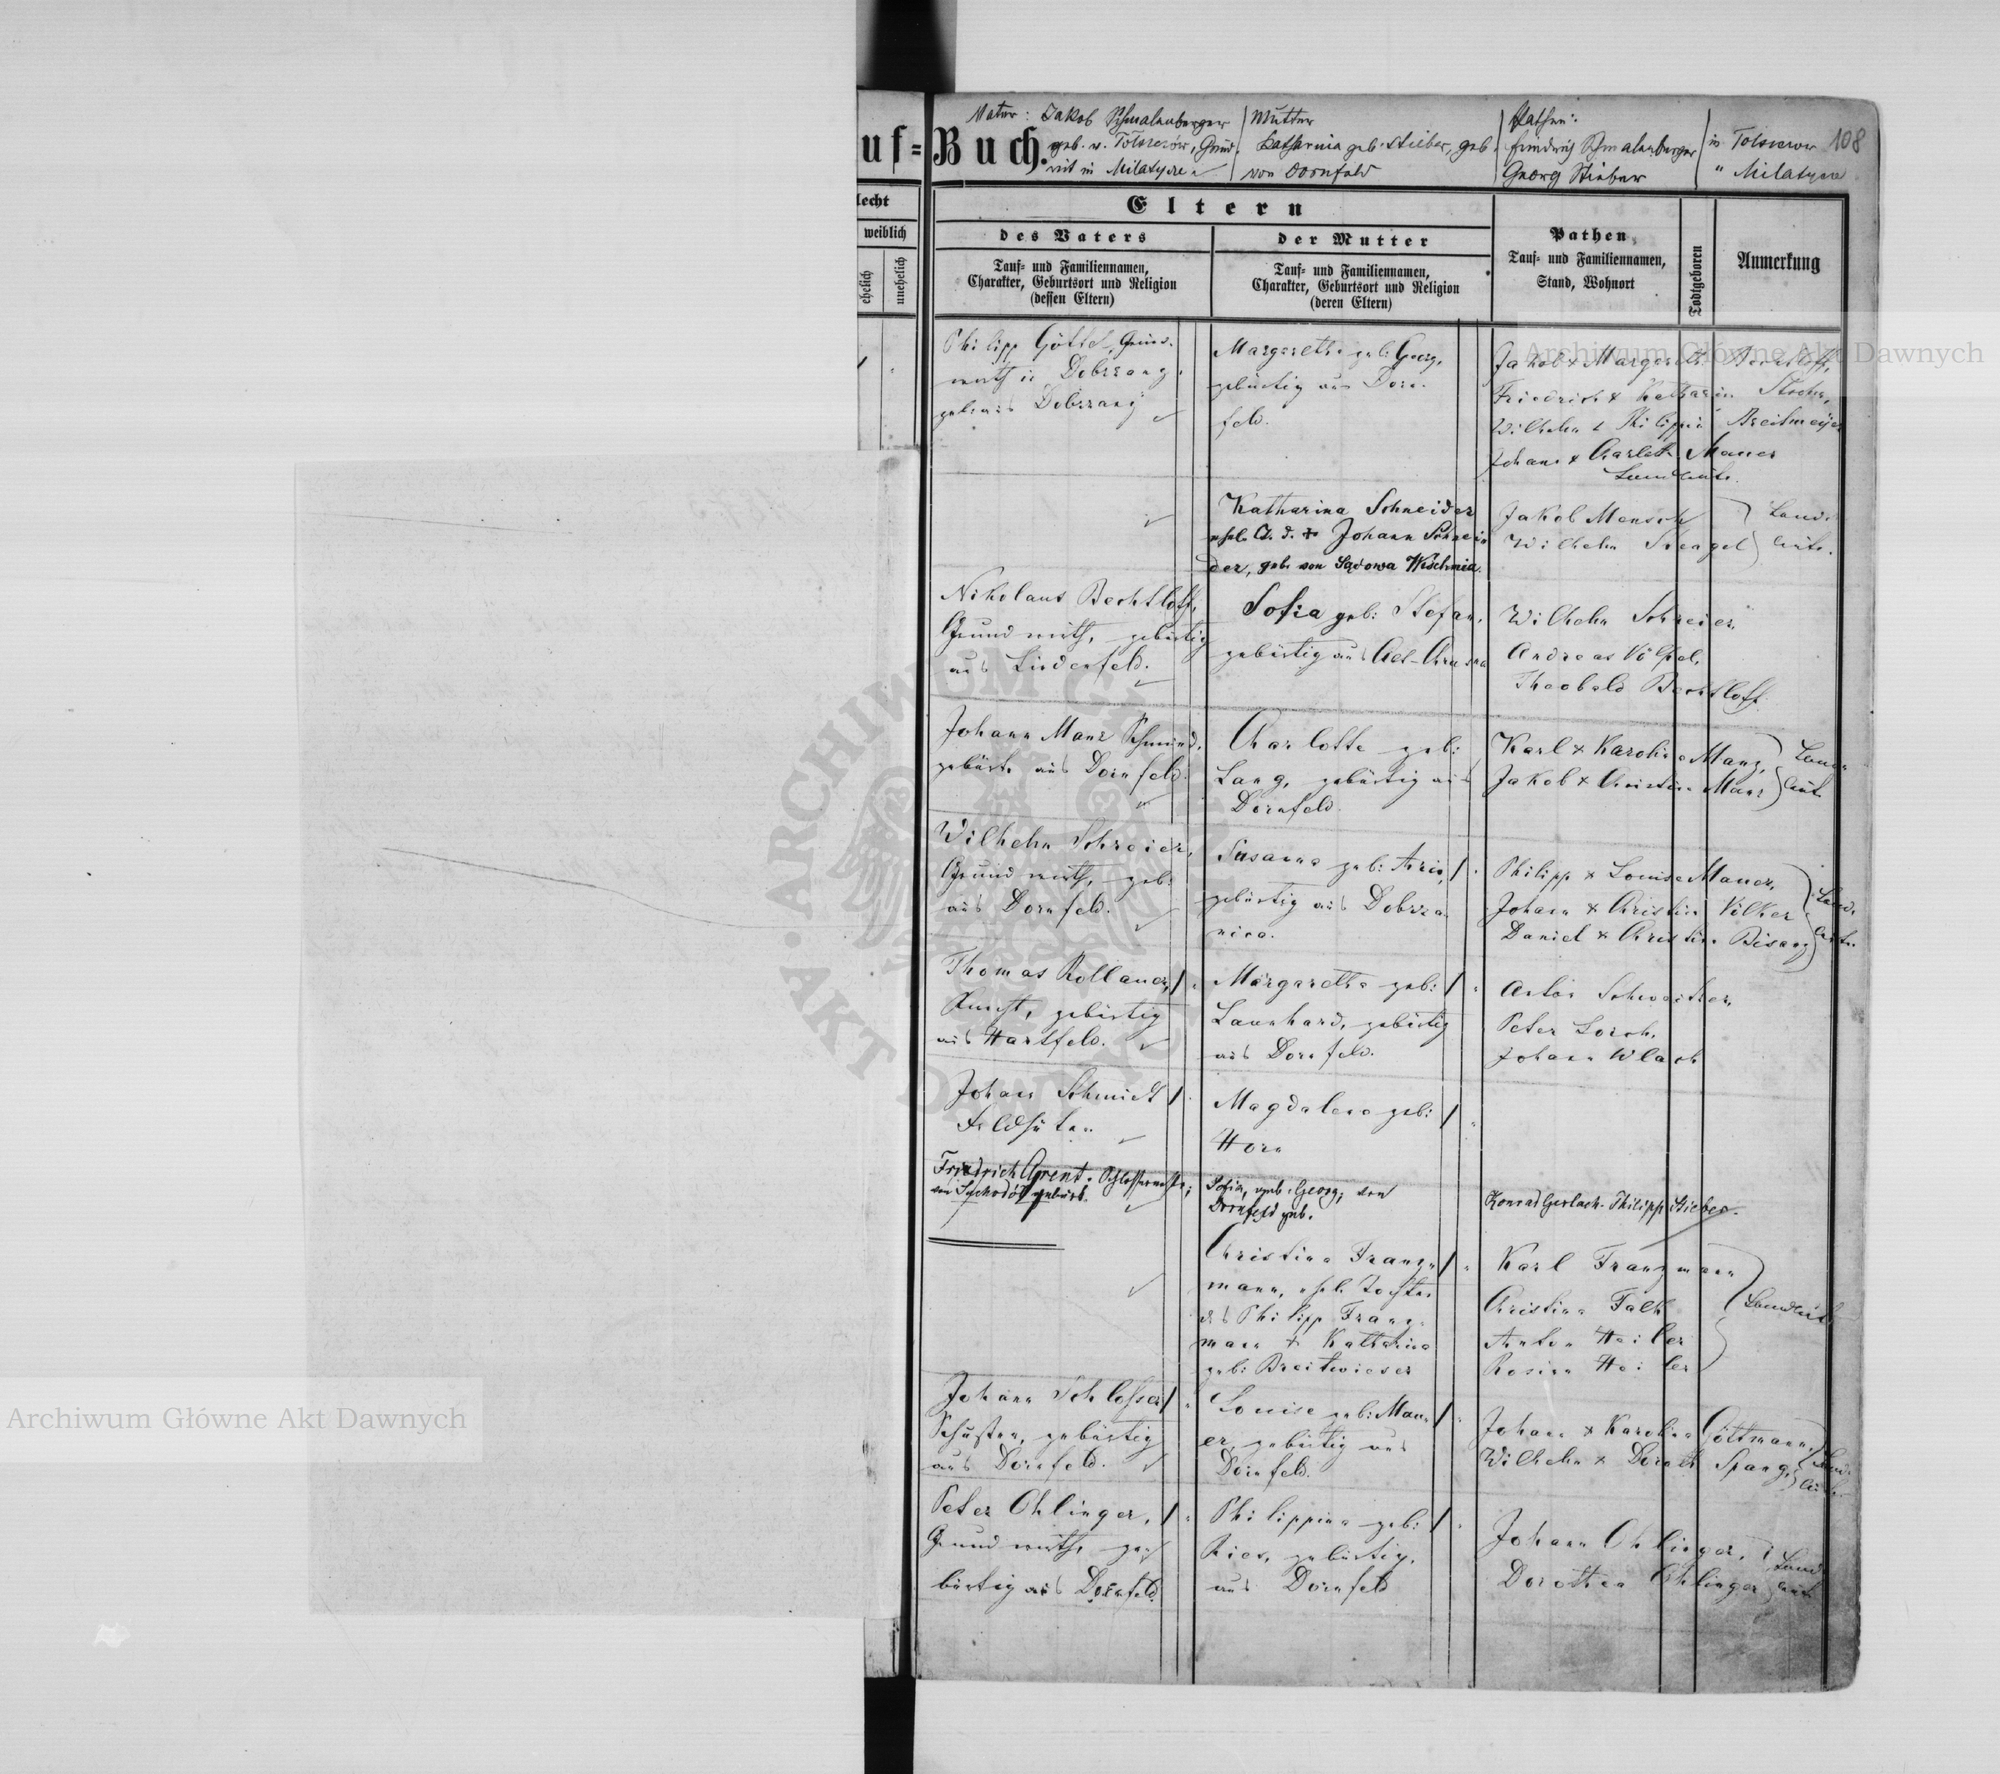 Vater: Jakob Schmalenberger
geb. v. Tolszczów, Grund-
wirt in Milatycze
Mutter
Katharina geb. Stieber, geb.
von Dornfeld
Pathen:
Friedrich Schmalenberger in Tolszczow
Georg Stieber " Milatycze
108
uf= Buch.
lecht
weiblich
ehelich
unehelich
Eltern
des Vaters
Tauf= und Familiennamen,
Charakter, Geburtsort und Religion
(dessen Eltern)
der Mutter
Tauf= und Familiennamen,
Charakter, Geburtsort und Religion
(deren Eltern)
Pathen,
Tauf= und Familiennamen,
Stand, Wohnort
Todtgeboren
Anmerkung
Philipp Göttel, Grund-
wirth in Dobrzany,
geb. aus Dobrzany
Margaretha geb: Georg,
gebürtig aus Dorn-
feld.
Jakob & Margareth Bechtloff,
Friedrich & Katharin
Wilhelm & Philippin Breitmeyer
Johann & Charlott Mauer
Landleute.
Katharina Schneider
ehel. T. d. Johann Schnei
der, geb. von Sądowa Wischnia.
Jakob Mensch
Wilhelm Stengel
Land-
leute.
Nikolaus Bechtloff,
Grundwirth, gebürtig
aus Lindenfeld.
Sofia geb: Stefan,
gebürtig aus
Wilhelm Schreier,
Andreas Völpel,
Theobald Bechtloff.
Johann Manz Schmied,
gebürt. aus Dornfeld.
Charlotte geb:
Lang, gebürtig aus
Dornfeld.
Karl & Karolin Manz,
Jakob & Christin Manz
Land-
leute
Wilhelm Schreier,
Grundwirth, geb:
aus Dornfeld.
Susanna geb:
gebürtig aus Dobrza-
nica.
Philipp & Louise Mauer,
Johann & Christin Völker
Daniel & Christin Bisanz
Land-
leute.
Thomas Rollauer,
Knecht, gebürtig
aus Hartfeld.
Margaretha geb:
Launhard, gebürtig
aus Dornfeld.
Anton Schweitzer,
Peter Lorch,
Johann Wlach
Johann Schmidt
Feldhüter
Magdalena geb:
Horn
Friedrich Arent, Schlossermstr.;
von geburt.
Sofia, geb. Georg; von
Dornfeld geb.
Konrad Gerlach. Philipp Stieber.
Christina Franz-
mann, ehel. Tochter
des Philipp Franz-
mann & Katharina
geb: Breitwieser
Karl Franzmann
Christina Falk
Anton Heiler
Rosina Heiler
Landleute
Johann Schlosser
Schuster, gebürtig
aus Dornfeld.
Louise geb: Mau-
er, gebürtig aus
Dornfeld.
Johann & Karolin Göttmann,
Wilhelm & Doroth Spang,
Land-
leute
Peter Ohlinger,
Grundwirth, ge-
bürtig aus Dornfeld.
Philippina geb:
Ries, gebürtig,
aus Dornfeld
Johann Ohlinger,
Dorothea Ohlinger
Land-
leute
Archiwum Główne Akt Dawnych
Archiwum Główne Akt Dawnych